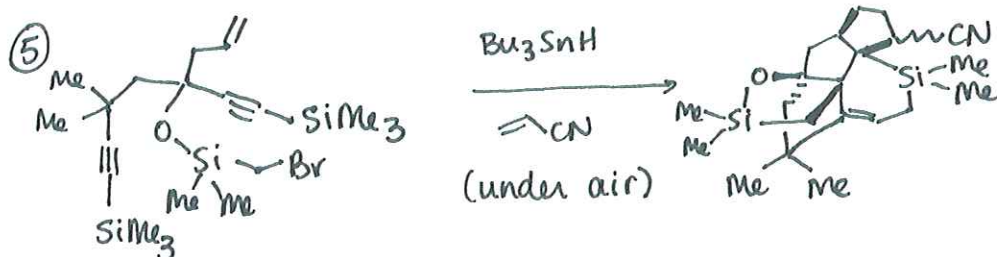 5
Me
Me
O
SiMe₃
Si
Br
Me Me
SiMe₃
Bu₃SnH
CN
(under air)
CN
Me
Si
Me
O
Me
Si
Me
Me Me